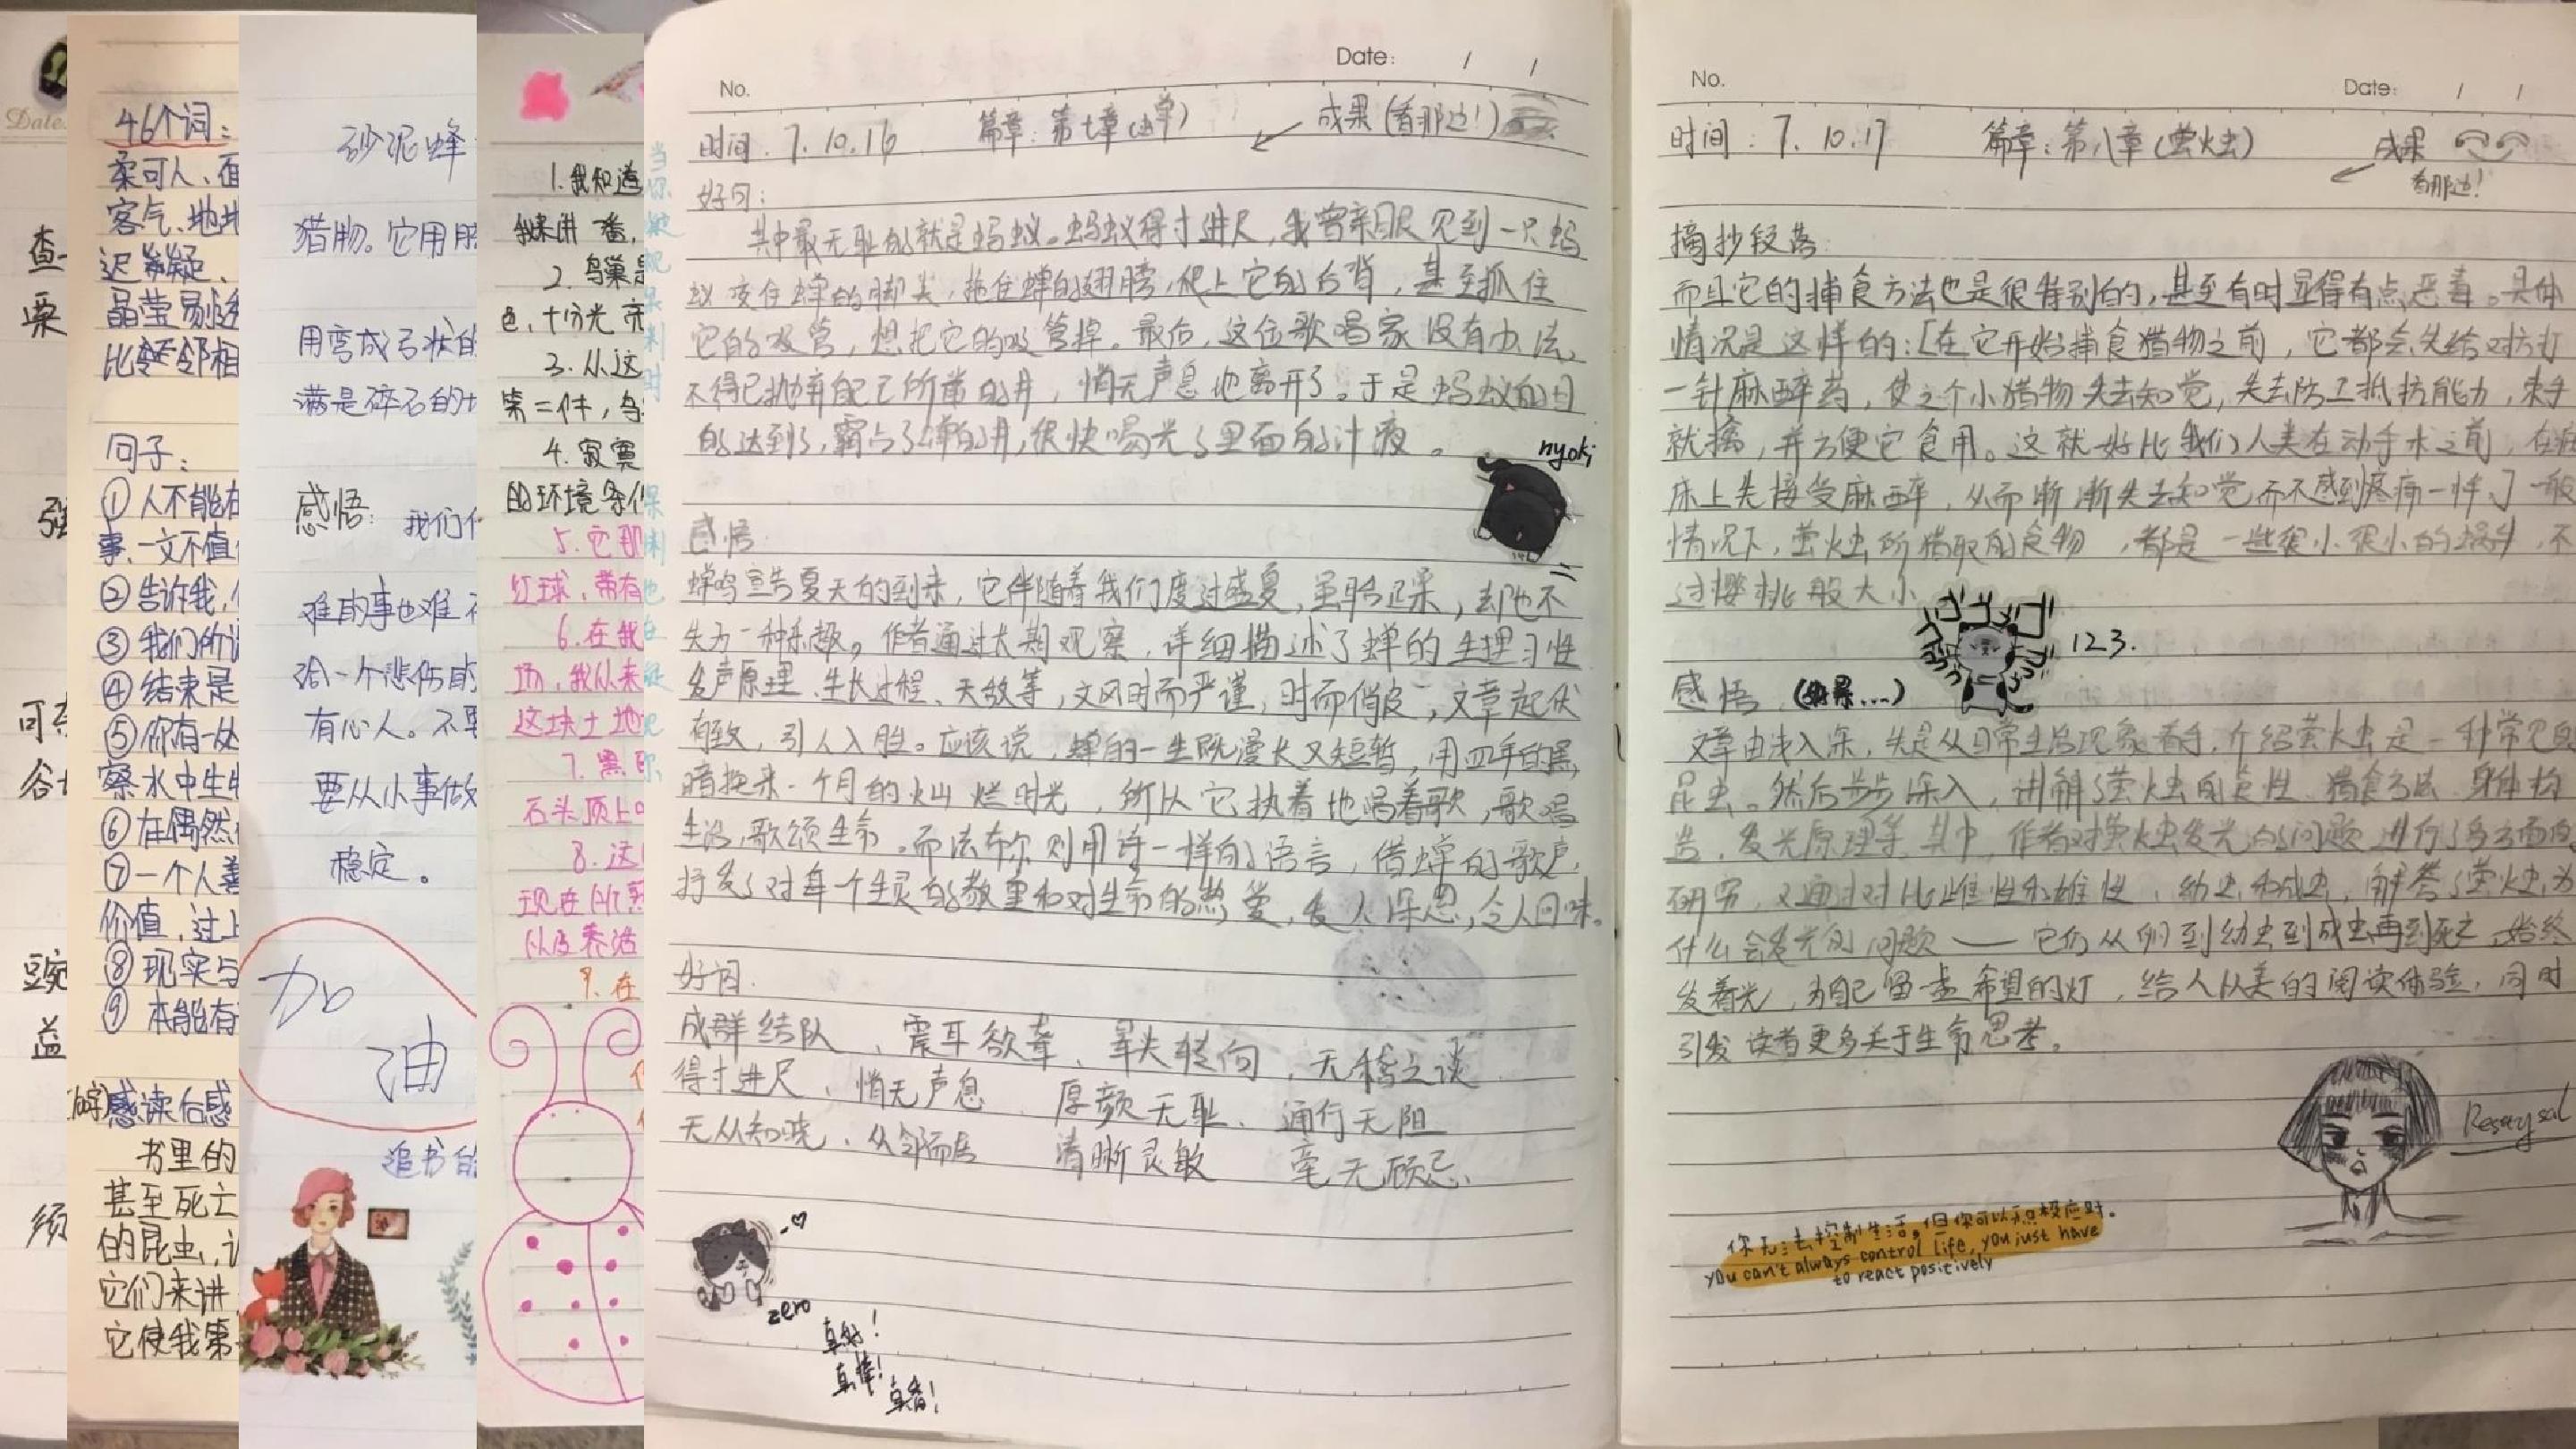 Date
查
栗
强
谷
益
须
46个词:
柔可人、面
客气、地
迟疑、
晶莹易
比邻相
句子:
①人不能在
事、一文不值
②告诉我,
③我们的
④结束是
⑤你有一处
察水中生
⑥在偶然
⑦一个人善
价值,过上
⑧现实与
⑨本能有
感读后感
书里的
甚至死亡
的昆虫,
它们来讲
它使我第
砂泥蜂
猎物。它用
用弯成弓状的
满是碎石的
感悟: 我们
难的事也难不
给一个悲伤的
有心人。不要
要从小事做
稳定。
加
油
追书的
1.我知道
我来讲一番,
2.鸟巢
色,十分光亮
3.从这
第二件,鸟
4.寂寞
的环境条件
5.它
红球,带有
6.在我
场,我从来
这块土地
7.黑
石头顶上
8.这
现在
以及养活
9.在
No.
Date: / /
时间:7.10.16 篇章:第七章(蝉) 成果(看那边!)
好句:
其中最无耻的就是蚂蚁。蚂蚁得寸进尺,我曾亲眼见到一只蚂
蚁咬住蝉的脚尖,拖住蝉的翅膀,爬上它的后背,甚至抓住
它的吸管,想把它的吸管掉。最后,这位歌唱家没有办法,
不得已抛弃自己所凿的井,悄无声息地离开了。于是蚂蚁的目
的达到了,霸占了蝉的井,很快喝光了里面的汁液。
nyoki
感悟
蝉鸣宣告夏天的到来,它伴随着我们度过盛夏,虽聒噪,却也不
失为一种乐趣。作者通过长期观察,详细描述了蝉的生理习性
发声原理、生长过程、天敌等,文风时而严谨,时而俏皮,文章起伏
有致,引人入胜。应该说,蝉的一生既漫长又短暂,用四年的黑
暗换来一个月的灿烂时光,所以它执着地唱着歌,歌唱
生活,歌颂生命。而法布尔则用诗一样的语言,借蝉的歌声,
抒发了对每一个生灵的敬重和对生命的热爱,发人深思,令人回味。
好词.
成群结队、震耳欲聋、晕头转向、无稽之谈
得寸进尺、悄无声息 厚颜无耻、通行无阻
无从知晓、从邻而居 清晰灵敏 毫无顾忌、
zero
真好!
真棒!
真香!
No.
Date: / /
时间:7.10.17 篇章:第八章(萤火虫) 成果
看那边!
摘抄段落:
而且它的捕食方法也是很特别的,甚至有时显得有点恶毒。具体
情况是这样的:[在它开始捕食猎物之前,它都会先给对方打
一针麻醉药,使这个小猎物失去知觉,失去防卫抵抗能力,束手
就擒,并方便它食用。这就好比我们人类在动手术之前,在病
床上先接受麻醉,从而渐渐失去知觉而不感到疼痛一样。]一般
情况下,萤火虫所猎取的食物,都是一些很小很小的蜗牛,不
过樱桃般大小
123.
感悟
文章由浅入深,先是从日常生活现象着手,介绍萤火虫是一种常见的
昆虫。然后步步深入,讲解了萤火虫的食性、猎食方法、身体构
造、发光原理等。其中,作者对萤火虫发光的问题进行了多方面的
研究,又通过对比雌性和雄性、幼虫和成虫,解答了萤火虫为
什么会发光的问题——它们从卵到幼虫到成虫再到死去,始终
发着光,为自己留一盏希望的灯,给人以美的阅读体验,同时
引发读者更多关于生命思考。
你无法控制生活,但你可以积极应对。
you can't always control life, you just have
to react positively